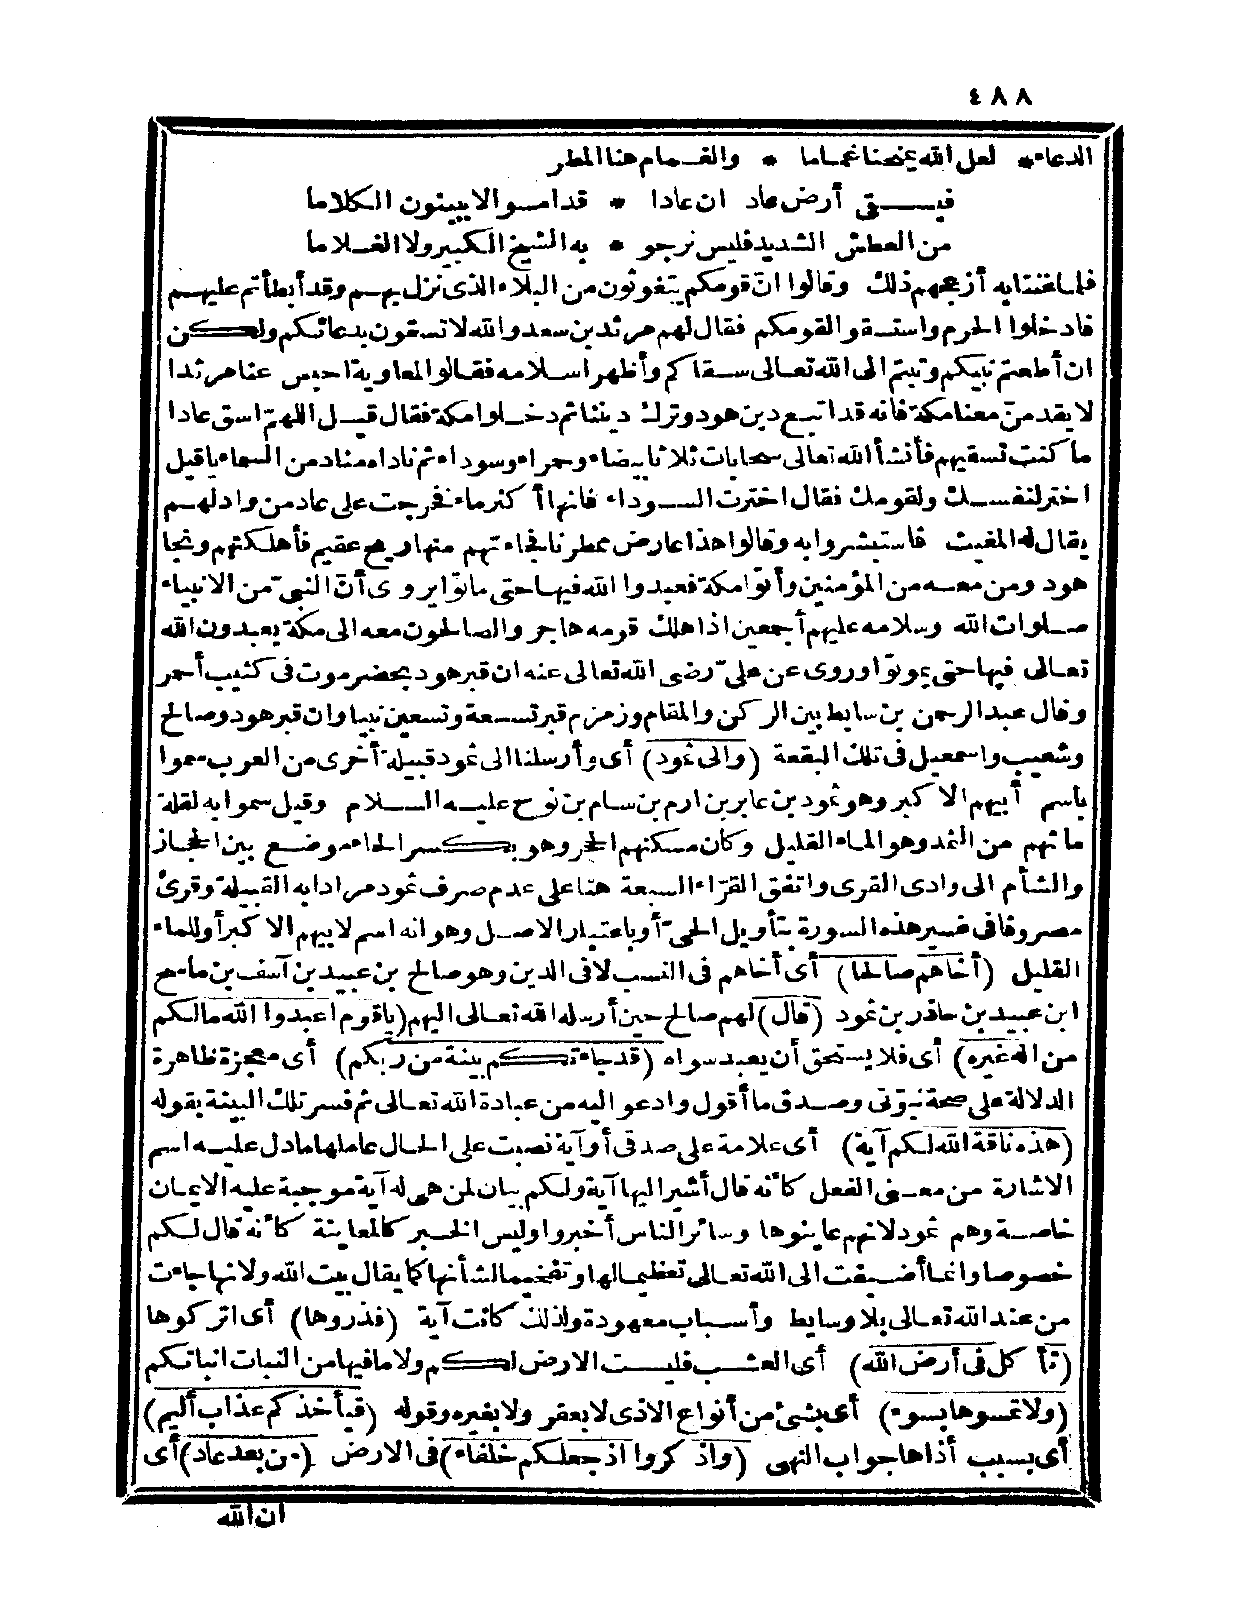 ٤٨٨
الدعاء * لعل الله يمنحنا غماما * والغمام هنا المطر
فيسقى أرض عاد ان عادا * قد امسوا لا يبينون الكلاما
من العطش الشديد فليس نرجو * به الشيخ الكبير ولا الغلاما
فلما غنتا به أزعجهم ذلك وقالوا انّ قومكم يتغوثون من البلاء الذى نزل بهم وقد أبطأتم عليهم
فادخلوا الحرم واستسقوا لقومكم فقال لهم مرثد بن سعد والله لا تسقون بدعائكم ولكن
ان أطعتم نبيكم وتبتم الى الله تعالى سقاكم وأظهر اسلامه فقالوا لمعاوية احبس عنا مرثدا
لا يقدمنّ معنا مكة فانه قد اتبع دين هود وترك ديننا ثم دخلوا مكة فقال قيل اللهمّ اسق عادا
ما كنت تسقيهم فأنشأ الله تعالى سحابات ثلاثا بيضاء وحمراء وسوداء ثم ناداه مناد من السماء يا قيل
اختر لنفسك ولقومك فقال اخترت السوداء فانها أكثر ماء فخرجت على عاد من واد لهم
يقال له المغيث فاستبشروا به وقالوا هذا عارض ممطرنا فجاءتهم منها ريح عقيم فأهلكتهم ونجا
هود ومن معه من المؤمنين وأتوا مكة فعبدوا الله فيها حتى ماتوا يروى أنّ النبىّ من الانبياء
صلوات الله وسلامه عليهم أجمعين اذا هلك قومه هاجر والصالحون معه الى مكة يعبدون الله
تعالى فيها حتى يموتوا وروى عن علىّ رضى الله تعالى عنه ان قبر هود بحضرموت فى كثيب أحمر
وقال عبد الرحمن بن سابط بين الركن والمقام وزمزم قبر تسعة وتسعين نبيا وان قبر هود وصالح
وشعيب واسمعيل فى تلك البقعة (والى ثمود) أى وأرسلنا الى ثمود قبيلة أخرى من العرب سموا
باسم أبيهم الاكبر وهو ثمود بن عابر بن ارم بن سام بن نوح عليه السلام وقيل سموا به لقلة
مائهم من الثمد وهو الماء القليل وكان مسكنهم الحجر وهو بكسر الحاء موضع بين الحجاز
والشأم الى وادى القرى واتفق القرّاء السبعة هنا على عدم صرف ثمود مرادا به القبيلة وقرئ
مصروفا فى غير هذه السورة بتأويل الحىّ أو باعتبار الاصل وهو انه اسم لابيهم الاكبر أو للماء
القليل (أخاهم صالحا) أى أخاهم فى النسب لا فى الدين وهو صالح بن عبيد بن آسف بن ماسح
ابن عبيد بن حاذر بن ثمود (قال) لهم صالح حين أرسله الله تعالى اليهم (يا قوم اعبدوا الله مالكم
من اله غيره) أى فلا يستحق أن يعبد سواه (قد جاءتكم بينة من ربكم) أى معجزة ظاهرة
الدلالة على صحة نبوّتى وصدق ما أقول وادعو اليه من عبادة الله تعالى ثم فسر تلك البينة بقوله
(هذه ناقة الله لكم آية) أى علامة على صدقى أو آية نصبت على الحال عاملها ما دل عليه اسم
الاشارة من معنى الفعل كأنه قال أشير اليها آية ولكم بيان لمن هى له آية موجبة عليه الايمان
خاصة وهم ثمود لانهم عاينوها وسائر الناس أخبروا وليس الخبر كالمعاينة كأنه قال لكم
خصوصا وانما أضيفت الى الله تعالى تعظيما لها وتفخيما لشأنها كما يقال بيت الله ولانها جاءت
من عند الله تعالى بلا وسايط وأسباب معهودة ولذلك كانت آية (فذروها) أى اتركوها
(تأكل فى أرض الله) أى العشب فليست الارض لكم ولا ما فيها من النبات انباتكم
(ولا تمسوها بسوء) أى بشئ من أنواع الاذى لا بعقر ولا بغيره وقوله (فيأخذكم عذاب أليم)
أى بسبب أذاها جواب النهى (واذكروا اذ جعلكم خلفاء) فى الارض (من بعد عاد) أى
ان الله